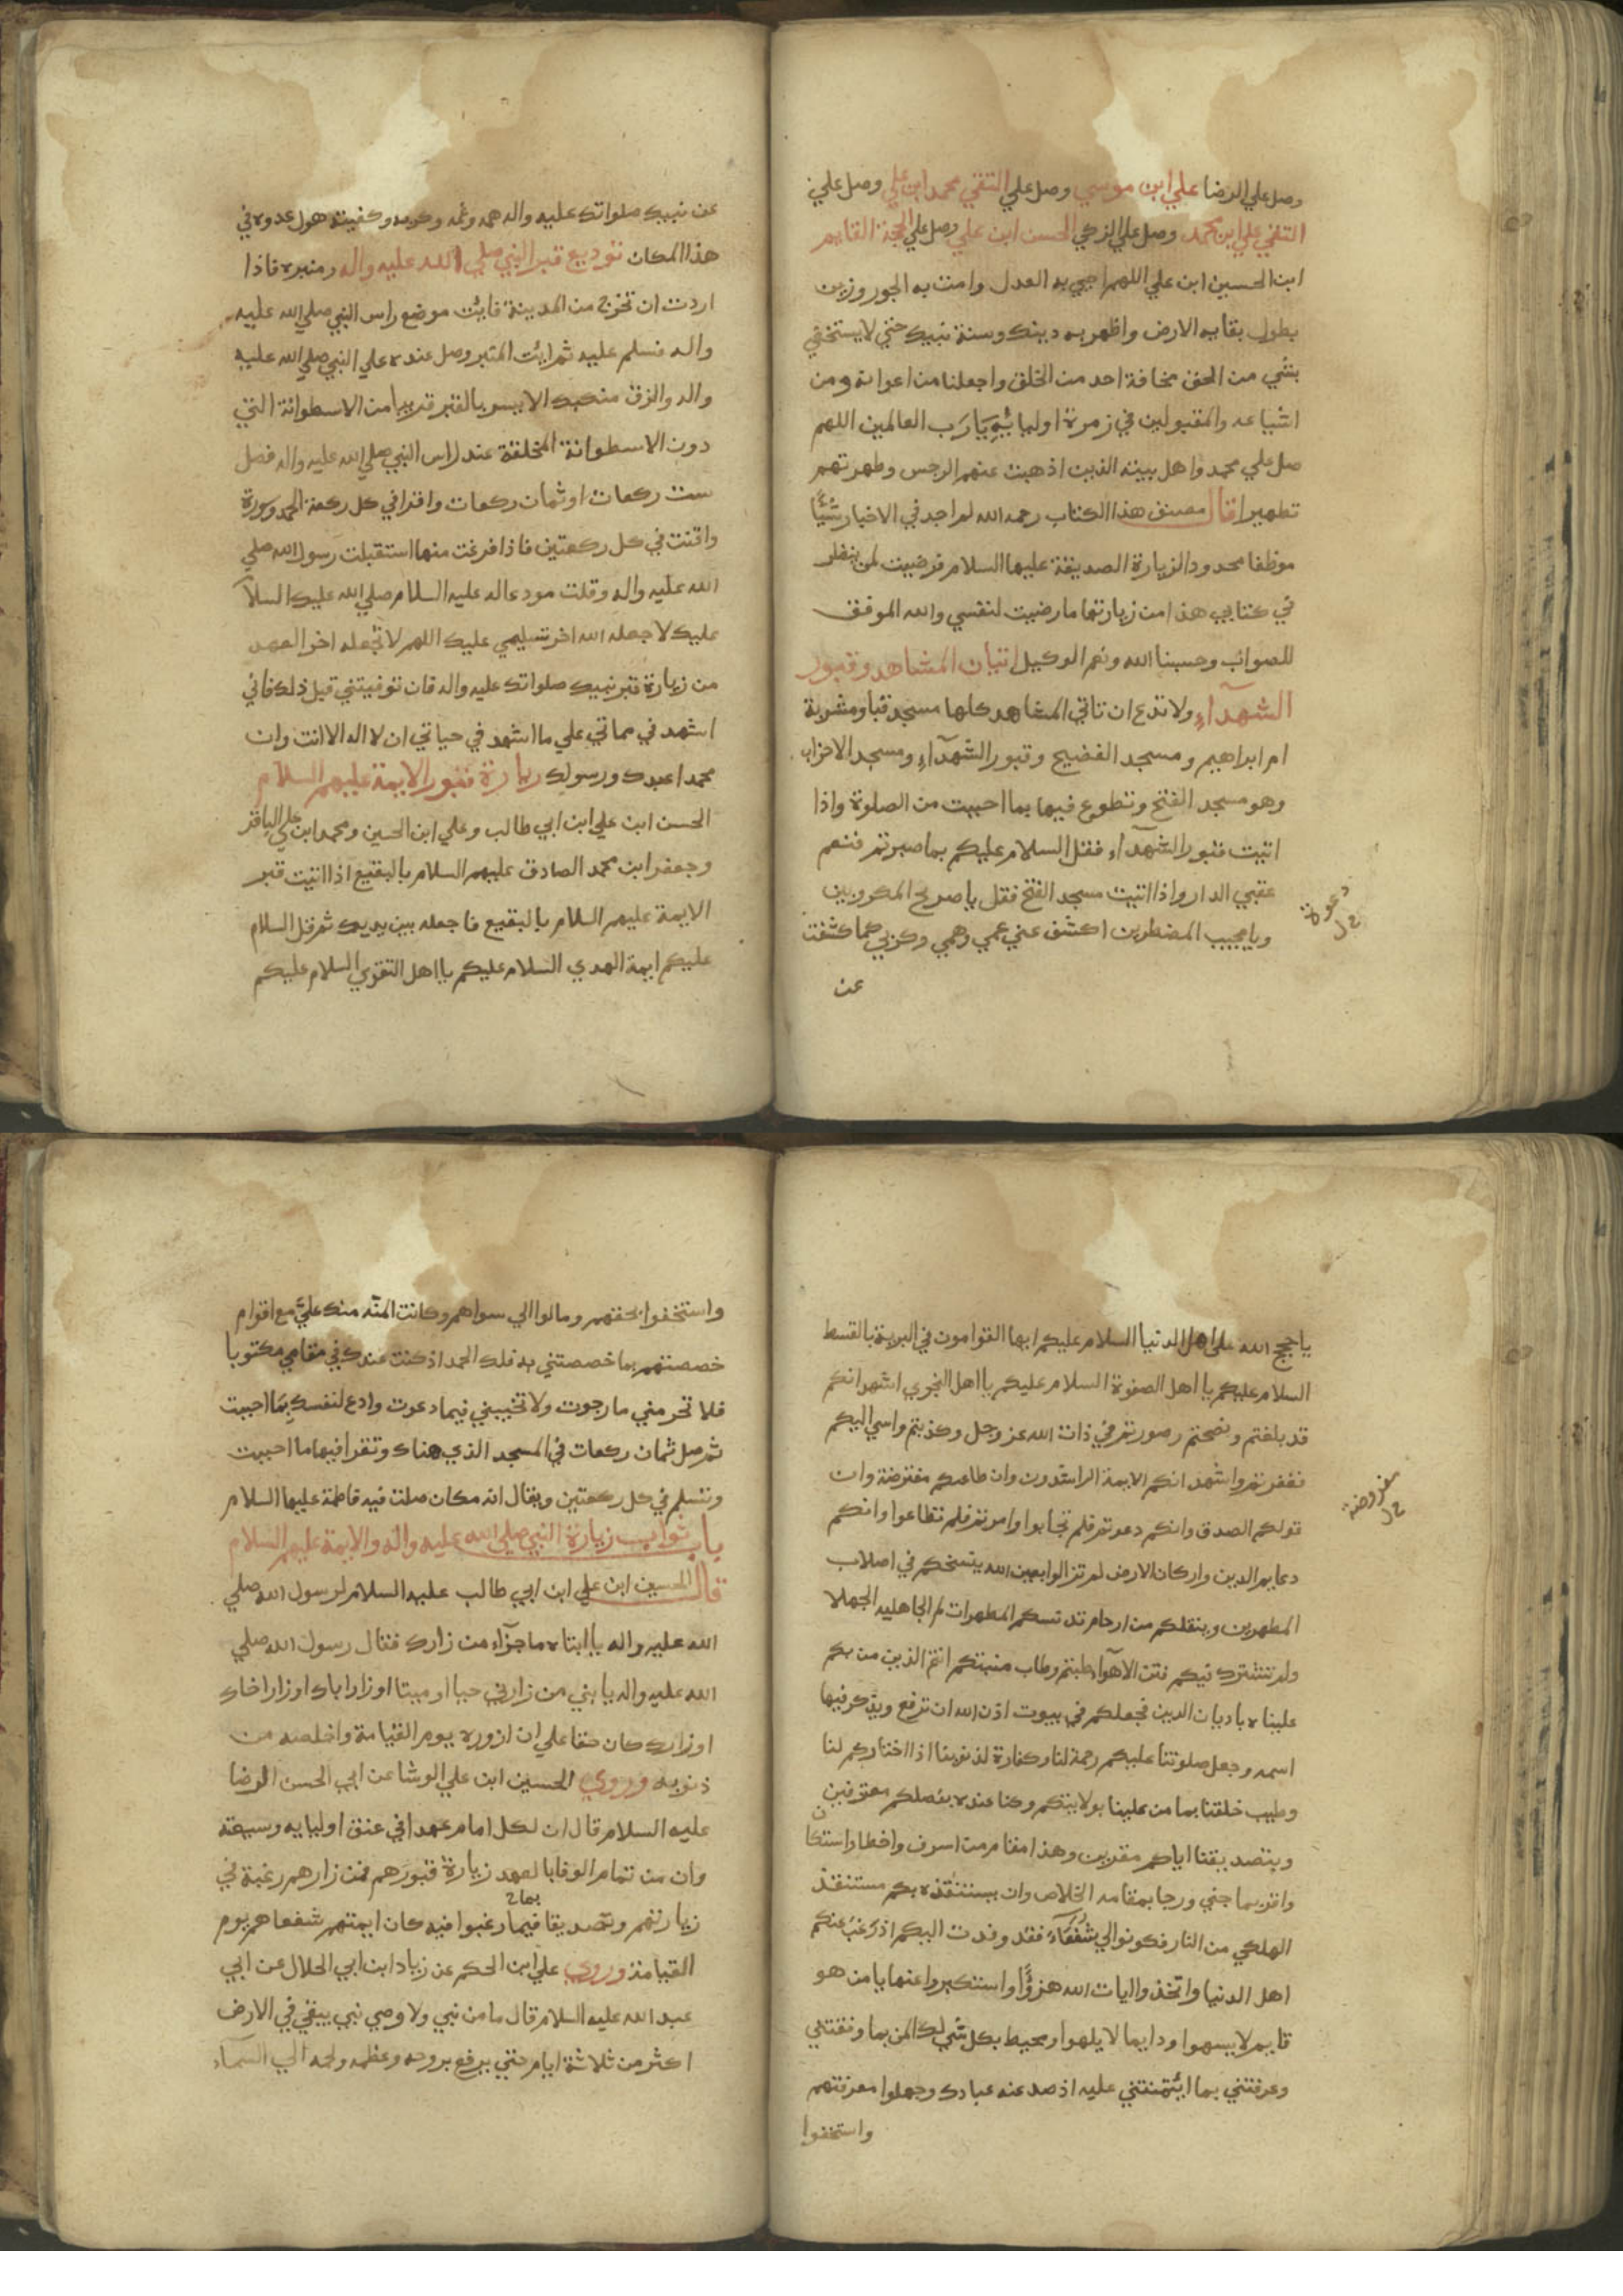 وصل علي الرضا علي ابن موسي وصل علي التقي محمد ابن علي وصل علي
النقي علي ابن محمد وصل علي الزكي الحسن ابن علي وصل علي الحجة القايم
ابن الحسين ابن علي اللهم احيي به العدل وامت به الجور وزين
بطول بقايه الارض واظهر به دينك وسنة نبيك حتي لا يستخفي
بشي من الحق مخافة احد من الخلق واجعلنا من اعوانه ومن
اشياعه والمقبولين في زمرة اوليائه يا رب العالمين اللهم
صل علي محمد واهل بيته الذين اذهبت عنهم الرجس وطهرتهم
تطهيرا قال مصنف هذا الكتاب رحمه الله لم اجد في الاخبار شيئا
موظفا محدودا لزيارة الصديقة عليها السلام فرضيت لمن ينظر
في كتابي هذا من زيارتها ما رضيت لنفسي والله الموفق
للصواب وحسبنا الله ونعم الوكيل اتيان المشاهد وقبور
الشهدآء ولا تدع ان تاتي المشاهد كلها مسجد قبا ومشربة
ام ابراهيم ومسجد الفضيح وقبور الشهدآء ومسجد الاحزاب
وهو مسجد الفتح وتطوع فيها بما احببت من الصلوة واذا
اتيت قبور الشهدآء فقل السلام عليكم بما صبرتم فنعم
عقبي الدار واذا اتيت مسجد الفتح فقل يا صريخ المكروبين
دعوة
خ ل
ويا مجيب المضطرين اكشف عني غمي وهمي وكربي كما كشفت
عن
عن نبيك صلواتك عليه واله همه وغمه وكربه وكفيته هول عدوه في
هذا المكان توديع قبر النبي صلي الله عليه واله ومنبره فاذا
اردت ان تخرج من المدينة فائت موضع راس النبي صلي الله عليه
واله فسلم عليه ثم ائت المنبر وصل عنده علي النبي صلي الله عليه
واله والزق منكبك الايسر بالقبر قريبا من الاسطوانة التي
دون الاسطوانة المخلقة عند راس النبي صلي الله عليه واله فصل
ست ركعات او ثمان ركعات واقرا في كل ركعة الحمد وسورة
واقنت في كل ركعتين فاذا فرغت منها استقبلت رسول الله صلي
الله عليه واله وقلت مودعا له عليه السلام صلي الله عليك السلآ
عليك لا جعله الله اخر تسليمي عليك اللهم لا تجعله اخر العهد
من زيارة قبر نبيك صلواتك عليه واله فان توفيتني قبل ذلك فاني
اشهد في مماتي علي ما اشهد في حياتي ان لا اله الا انت وان
محمدا عبدك ورسولك زيارة قبور الايمة عليهم السلام
الحسن ابن علي ابن ابي طالب وعلي ابن الحسين ومحمد ابن علي الباقر
وجعفر ابن محمد الصادق عليهم السلام بالبقيع اذا اتيت قبر
الايمة عليهم السلام بالبقيع فاجعله بين يديك ثم قل السلام
عليكم ايمة الهدي السلام عليكم يا اهل التقوي السلام عليكم
يا حجج الله علي اهل الدنيا السلام عليكم ايها القوامون في البرية بالقسط
السلام عليكم يا اهل الصفوة السلام عليكم يا اهل النجوي اشهد انكم
قد بلغتم ونصحتم وصبرتم في ذات الله عز وجل وكذبتم واسي اليكم
فغفرتم واشهد انكم الايمة الراشدون وان طاعتكم مفترضة وان
مفروضة
خ ل
قولكم الصدق وانكم دعوتم فلم تجابوا وامرتم فلم تطاعوا وانكم
دعايم الدين واركان الارض لم تزالوا بعين الله ينسخكم في اصلاب
المطهرين وينقلكم من ارحام المطهرات لم الجاهلية الجهلا
ولم تشترك فيكم فتن الاهوآ طبتم وطاب منبتكم انتم الذين من بكم
علينا ديان الدين فجعلكم في بيوت اذن الله ان ترفع ويذكر فيها
اسمه وجعل صلوتنا عليكم رحمة لنا وكفارة لذنوبنا اذا اختاركم لنا
وطيب خلقنا بما من علينا بولايتكم وكنا عنده بفضلكم معترفين
وبتصديقنا اياكم مقرين وهذا مقام من اسرف واخطا واستكان
واقر بما جني ورجا بمقامه الخلاص وان يستنقذه بكم مستنقذ
الهلكي من النار فكونوا لي شفعاء فقد وفدت اليكم اذ رغب عنكم
اهل الدنيا واتخذوا ايات الله هزؤا واستكبروا عنها يا من هو
قايم لا يسهوا ودايما لا يلهوا ومحيط بكل شي لك المن بما وفقتني
وعرفتني بما ائتمنتني عليه اذ صد عنه عبادك وجهلوا معرفتهم
واستخفوا
واستخفوا بحقهم ومالوا الي سواهم وكانت المنه منك علي مع اقوام
خصصتهم بما خصصتني به فلك الحمد اذ كنت عندك في مقامي مكتوبا
فلا تحرمني ما رجوت ولا تخيبني فيما دعوت وادع لنفسك بما احببت
ثم صل ثمان ركعات في المسجد الذي هناك وتقرا فيها ما احببت
وتسلم في كل ركعتين ويقال انه مكان صلت فيه فاطمة عليها السلام
باب ثواب زيارة النبي صلي الله عليه واله والايمة عليهم السلام
قال الحسين ابن علي ابن ابي طالب عليه السلام لرسول الله صلي
الله عليه واله يا ابتاه ما جزآء من زارك فقال رسول الله صلي
الله عليه واله يا بني من زارني حيا او ميتا او زار اباك او زار اخاك
او زارك كان حقا علي ان ازوره يوم القيامة واخلصه من
ذنوبه وروي الحسين ابن علي الوشا عن ابي الحسن الرضا
عليه السلام قال ان لكل امام عهدا في عنق اوليايه وسيعته
وان من تمام الوفا بالعهد زيارة قبورهم فمن زارهم رغبة في
زيارتهم وتصديقا فيما رغبوا فيه كان ايمتهم شفعاهم يوم
بما خ
القيامة وروي علي ابن الحكم عن زياد ابن ابي الحلال عن ابي
عبد الله عليه السلام قال ما من نبي ولا وصي نبي يبقي في الارض
اكثر من ثلاثة ايام حتي يرفع بروحه وعظمه ولحمه الي السمآء